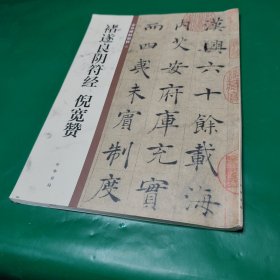 褚遂良阴符经 倪宽赞
中华书局
漢興六十餘載海
内艾安府庫充實
而四夷未賓制度